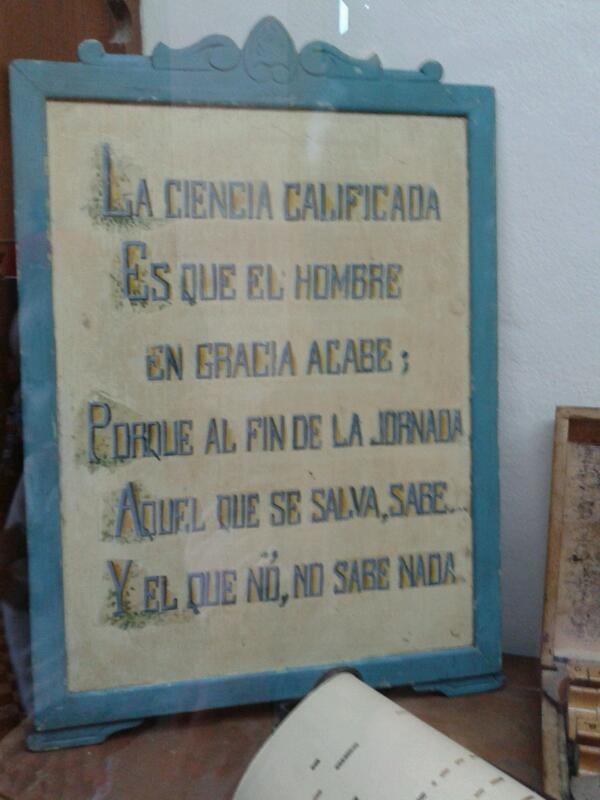 LA CIENCIA CALIFICADA
ES QUE EL HOMBRE
EN GRACIA ACABE;
PORQUE AL FIN DE LA JORNADA
AQUEL QUE SE SALVA, SABE...
Y EL QUE NÓ, NO SABE NADA